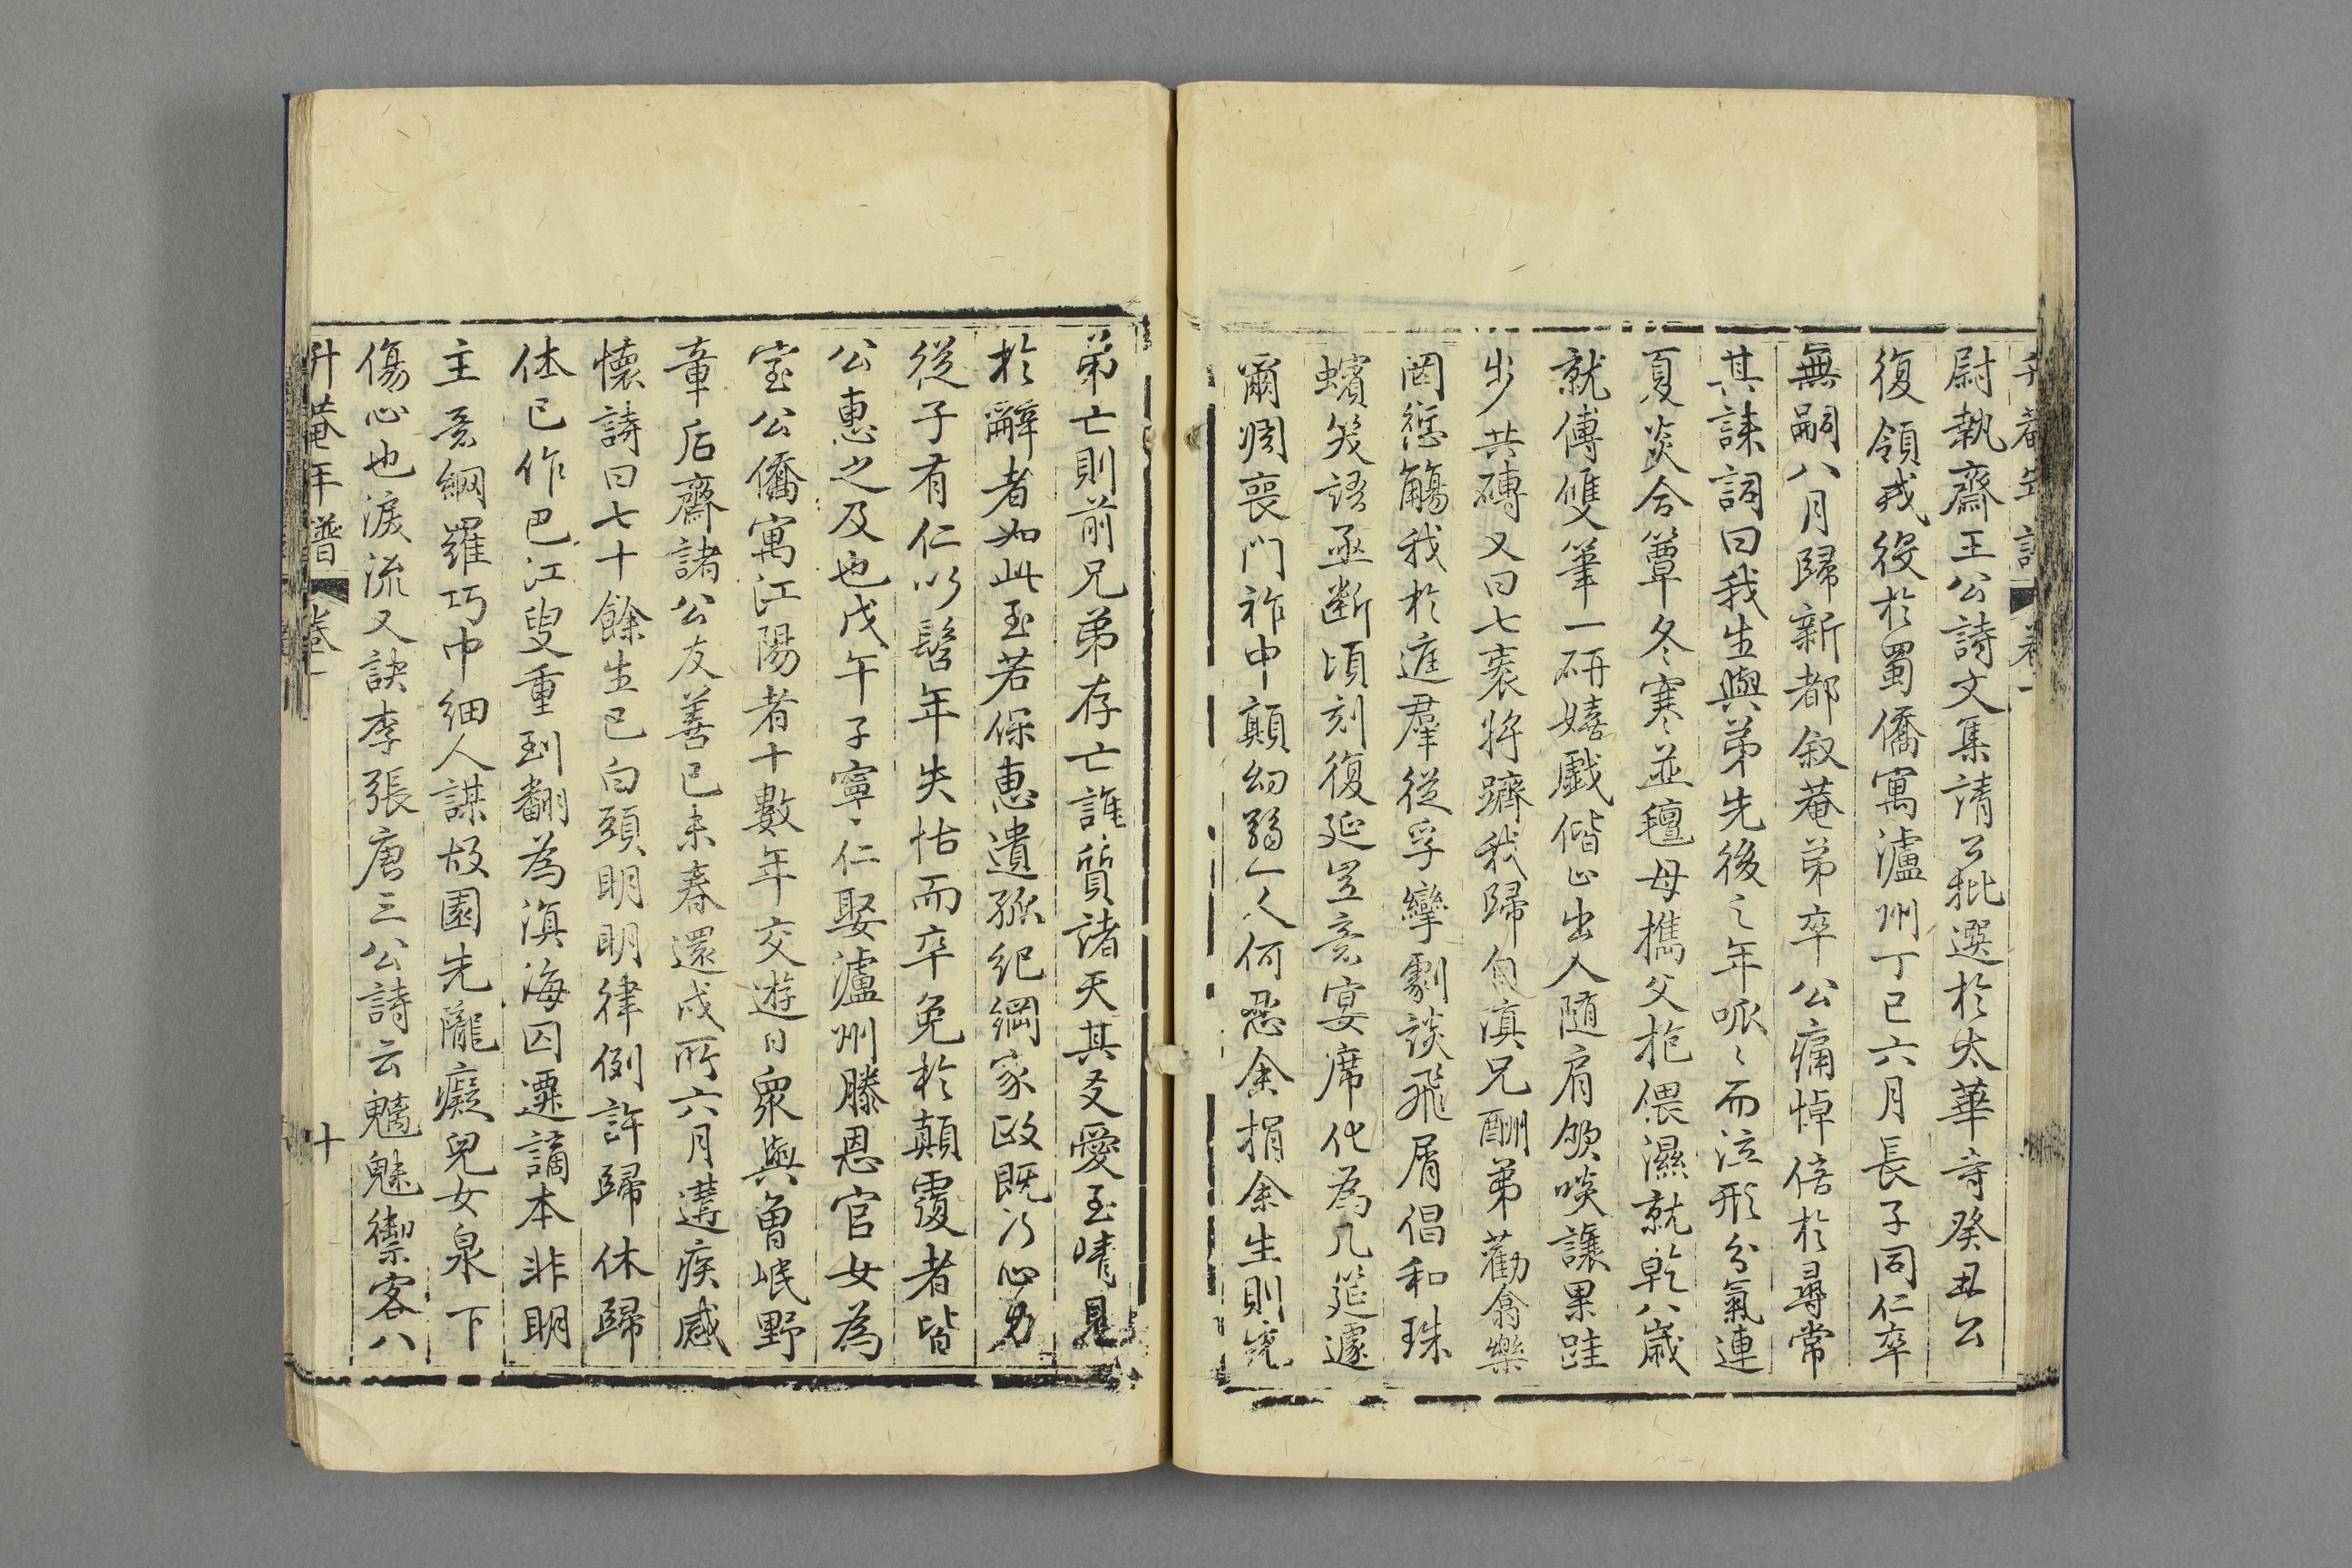 升菴年譜 卷一
尉執齋王公詩文集請公批選於太華寺癸丑公
復領戎役於蜀僑寓瀘州丁巳六月長子同仁卒
無嗣八月歸新都叙菴弟卒公痛悼倍於尋常
其誄詞曰我生與弟先後之年呱〻而泣形分氣連
夏炎合簟冬寒並氊母攜父抱偎濕就乾八歲
就傅雙筆一研嬉戲偕止出入隨肩飲啖讓果跬
步共磚又曰七袠將躋我歸自滇兄酬弟勸翕樂
罔愆觴我於庭羣從孚孿劇談飛屑倡和珠
蠙笑語亟断頃刻復延豈意宴席化為几筵遽
爾凋喪門祚中顛幼弱一人何忍余捐余生則究
弟亡則前兄弟存亡誰質諸天其友愛至情見
於辭者如此至若保惠遺孤紀綱家政既乃心男
從子有仁以髫年失怙而卒免於顛覆者皆
公惠之及也戊午子寧〻仁娶瀘州滕恩官女為
室公僑寓江陽者十數年交遊日衆與曾岷野
章后齋諸公友善己未春還戍所六月遘疾感
懷詩曰七十餘生已白頭明明律例許歸休歸
休已作巴江叟重到翻為滇海囚遷謫本非明
主意網羅巧中細人謀故園先隴癡兒女泉下
傷心也淚流又訣李張唐三公詩云魑魅禦客八
升菴年譜 卷一 十